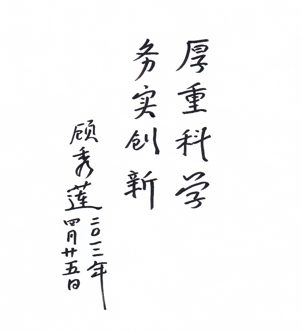 厚重科学
务实创新
顾秀莲
二〇一二年
四月廿五日